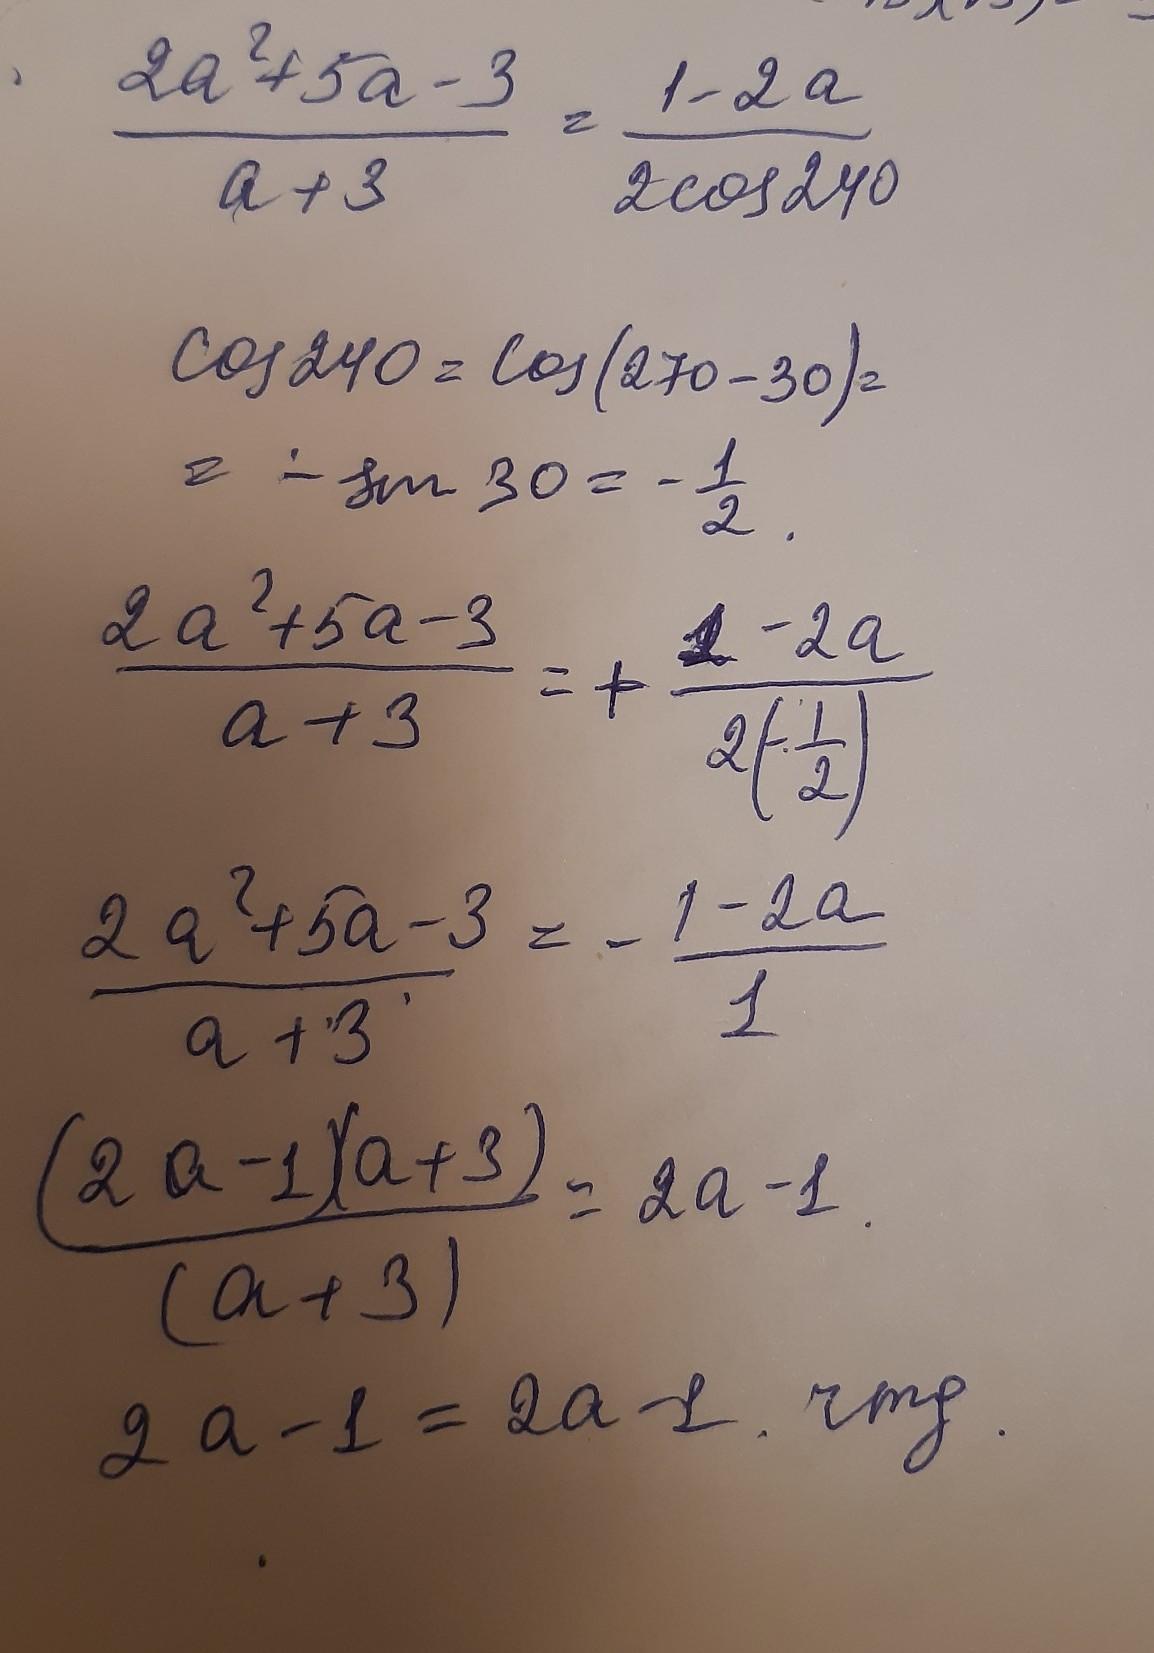 2a²+5a-3 / a+3 = 1-2a / 2cos240
cos240 = cos(270-30) =
= - sin 30 = - 1/2.
2a²+5a-3 / a+3 = + 1-2a / 2(-1/2)
2a²+5a-3 / a+3 = - 1-2a / 1
(2a-1)(a+3) / (a+3) = 2a-1.
2a-1 = 2a-1.